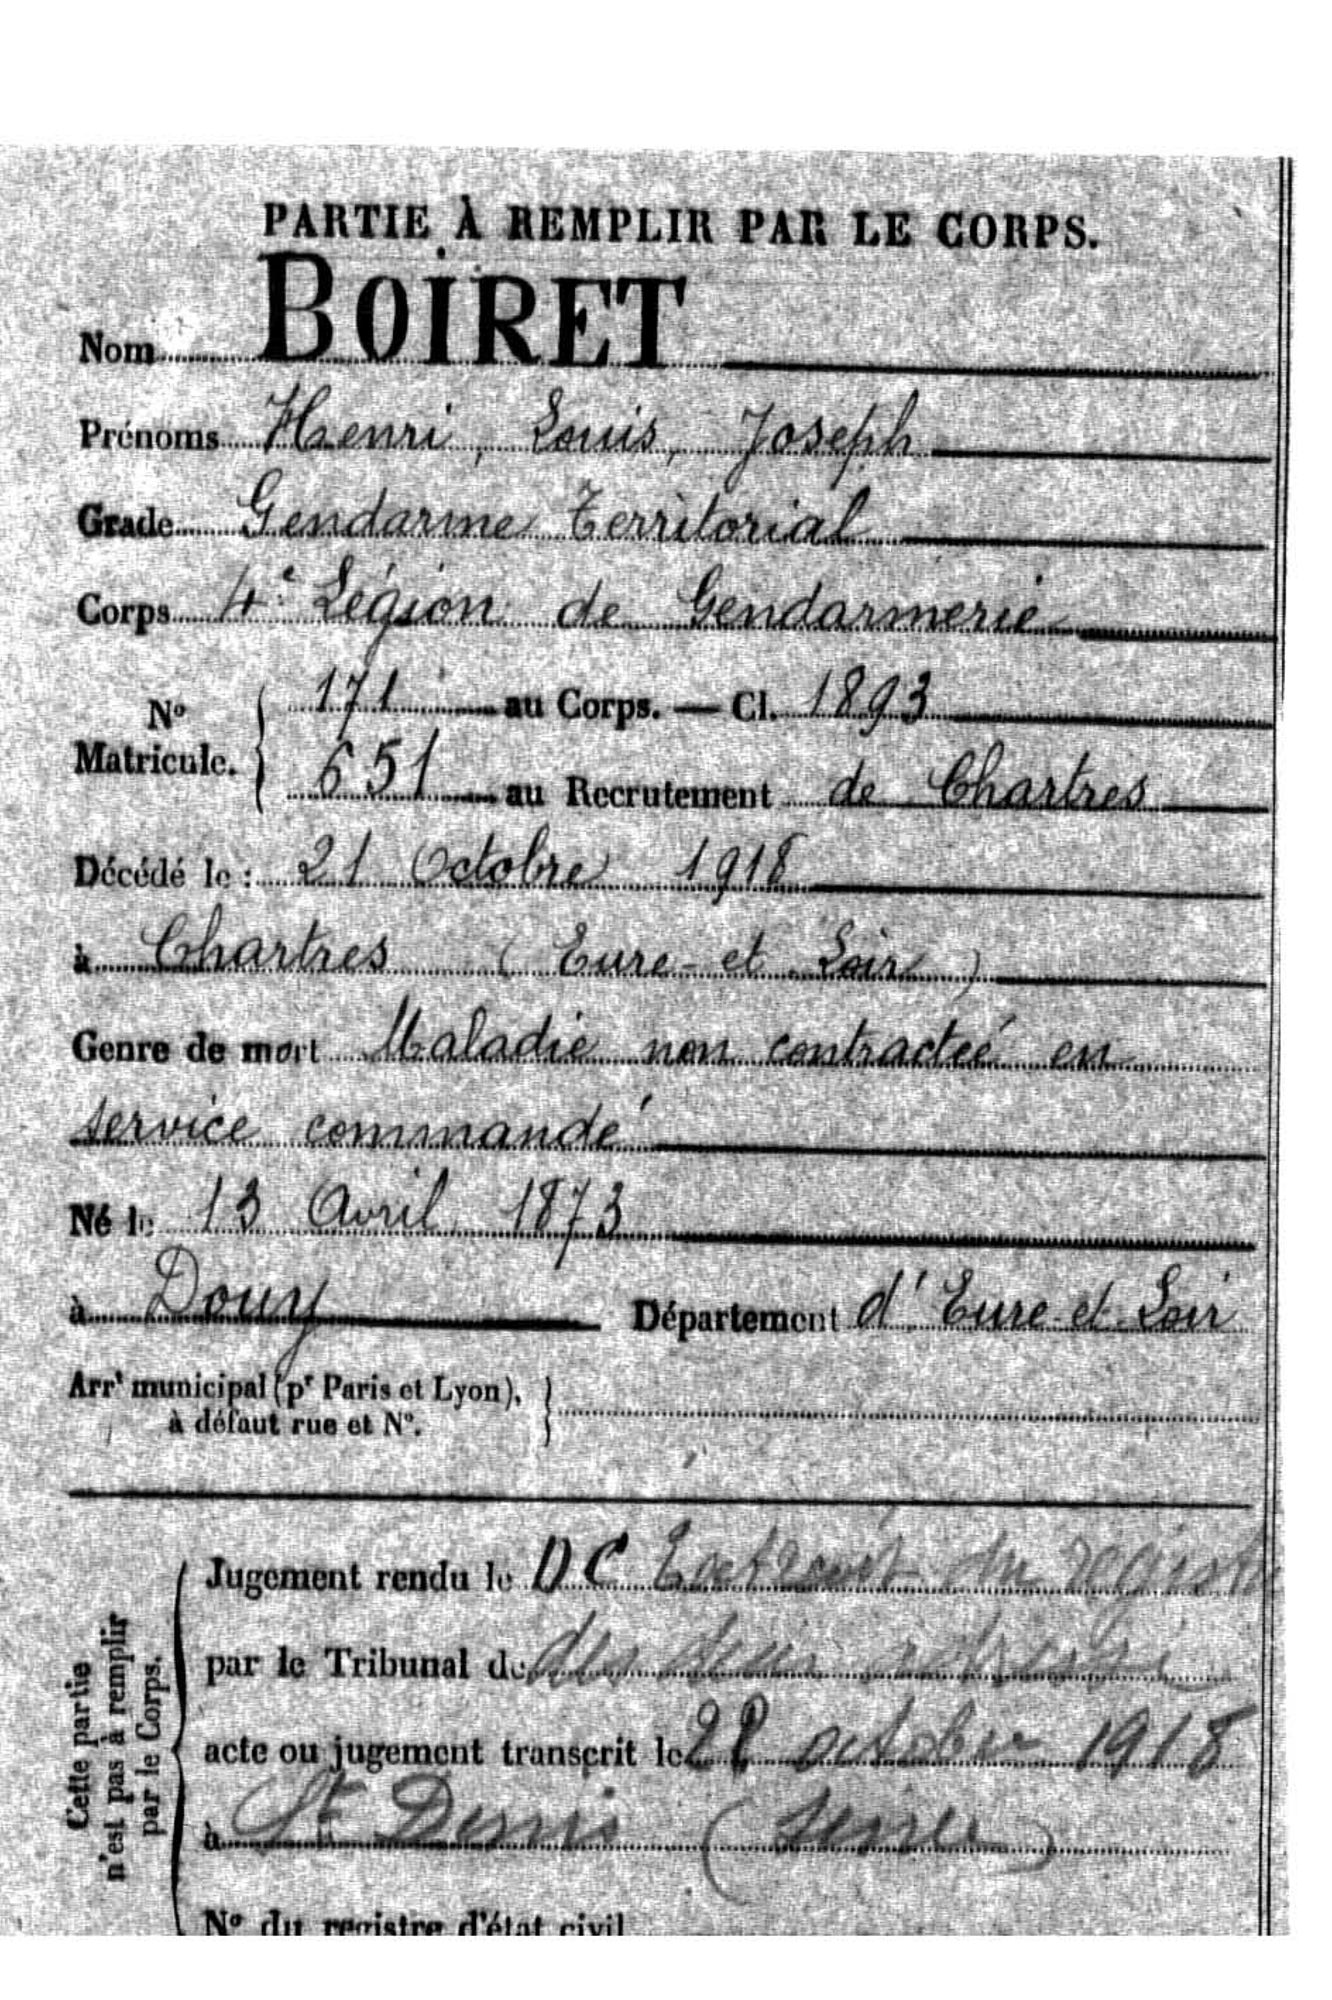 PARTIE À REMPLIR PAR LE CORPS.
Nom BOIRET
Prénoms Henri, Louis, Joseph
Grade Gendarme Territorial
Corps 4e Légion de Gendarmerie
No Matricule. { 171 au Corps. — Cl. 1893
651 au Recrutement de Chartres
Décédé le : 21 Octobre 1918
à Chartres (Eure-et Loir)
Genre de mort Maladie non contractée en
service commandé
Né le 13 Avril 1873
à Douy Département d'Eure-et-Loir
Arrt municipal (pr Paris et Lyon),
à défaut rue et No.
Cette partie
n'est pas à remplir
par le Corps.
Jugement rendu le DC Extrait du
par le Tribunal de des
acte ou jugement transcrit le 28 octobre 1918
à St Denis (Seine)
No du registre d'état civil